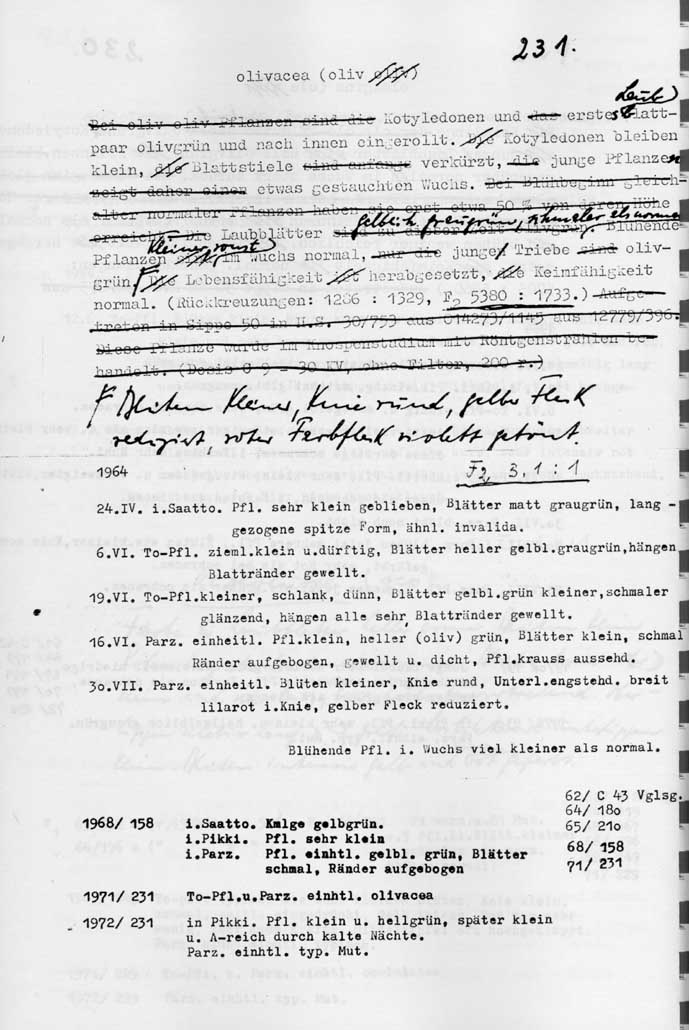 231.
olivacea (oliv oliv)
Laub
Bei oliv oliv Pflanzen sind die Kotyledonen und das erste Blatt-
paar olivgrün und nach innen eingerollt. Die Kotyledonen bleiben
klein, die Blattstiele sind anfangs verkürzt, die junge Pflanzen
zeigt daher einen etwas gestauchten Wuchs. Bei Blühbeginn gleich-
alter normaler Pflanzen haben sie erst etwa 50 % von deren Höhe
gelblich graugrün, schmaler als normal
erreicht. Die Laubblätter sind zu dieser Zeit olivgrün. Blühende
kleiner, sonst
Pflanzen sind im Wuchs normal, nur die junge Triebe sind oliv-
grün. Die Lebensfähigkeit ist herabgesetzt, die Keimfähigkeit
normal. (Rückkreuzungen: 1286 : 1329, F2 5380 : 1733.) Aufge-
treten in Sippe 50 in H.S. 30/753 aus 014273/1145 aus 12779/396.
Diese Pflanze wurde im Knospenstadium mit Röntgenstrahlen be-
handelt. (Dosis 0 9 - 30 KV, ohne Filter, 200 r.)
Blüten kleiner, Knie rund, gelber Fleck
reduziert, roter Farbfleck violett getönt.
1964 F2 3,1 : 1
24.IV. i.Saatto. Pfl. sehr klein geblieben, Blätter matt graugrün, lang -
gezogene spitze Form, ähnl. invalida.
6.VI. To-Pfl. zieml.klein u.dürftig, Blätter heller gelbl.graugrün,hängen
Blattränder gewellt.
19.VI. To-Pfl.kleiner, schlank, dünn, Blätter gelbl.grün kleiner,schmaler
glänzend, hängen alle sehr, Blattränder gewellt.
16.VI. Parz. einheitl. Pfl.klein, heller (oliv) grün, Blätter klein, schmal
Ränder aufgebogen, gewellt u. dicht, Pfl.krauss aussehd.
30.VII. Parz. einheitl. Blüten kleiner, Knie rund, Unterl.engstehd. breit
lilarot i.Knie, gelber Fleck reduziert.
Blühende Pfl. i. Wuchs viel kleiner als normal.
62/ C 43 Vglsg.
64/ 180
65/ 210
68/ 158
71/ 231
1968/ 158 i.Saatto. Kmlge gelbgrün.
i.Pikki. Pfl. sehr klein
i.Parz. Pfl. einhtl. gelbl. grün, Blätter
schmal, Ränder aufgebogen
1971/ 231 To-Pfl.u.Parz. einhtl. olivacea
1972/ 231 in Pikki. Pfl. klein u. hellgrün, später klein
u. A-reich durch kalte Nächte.
Parz. einhtl. typ. Mut.